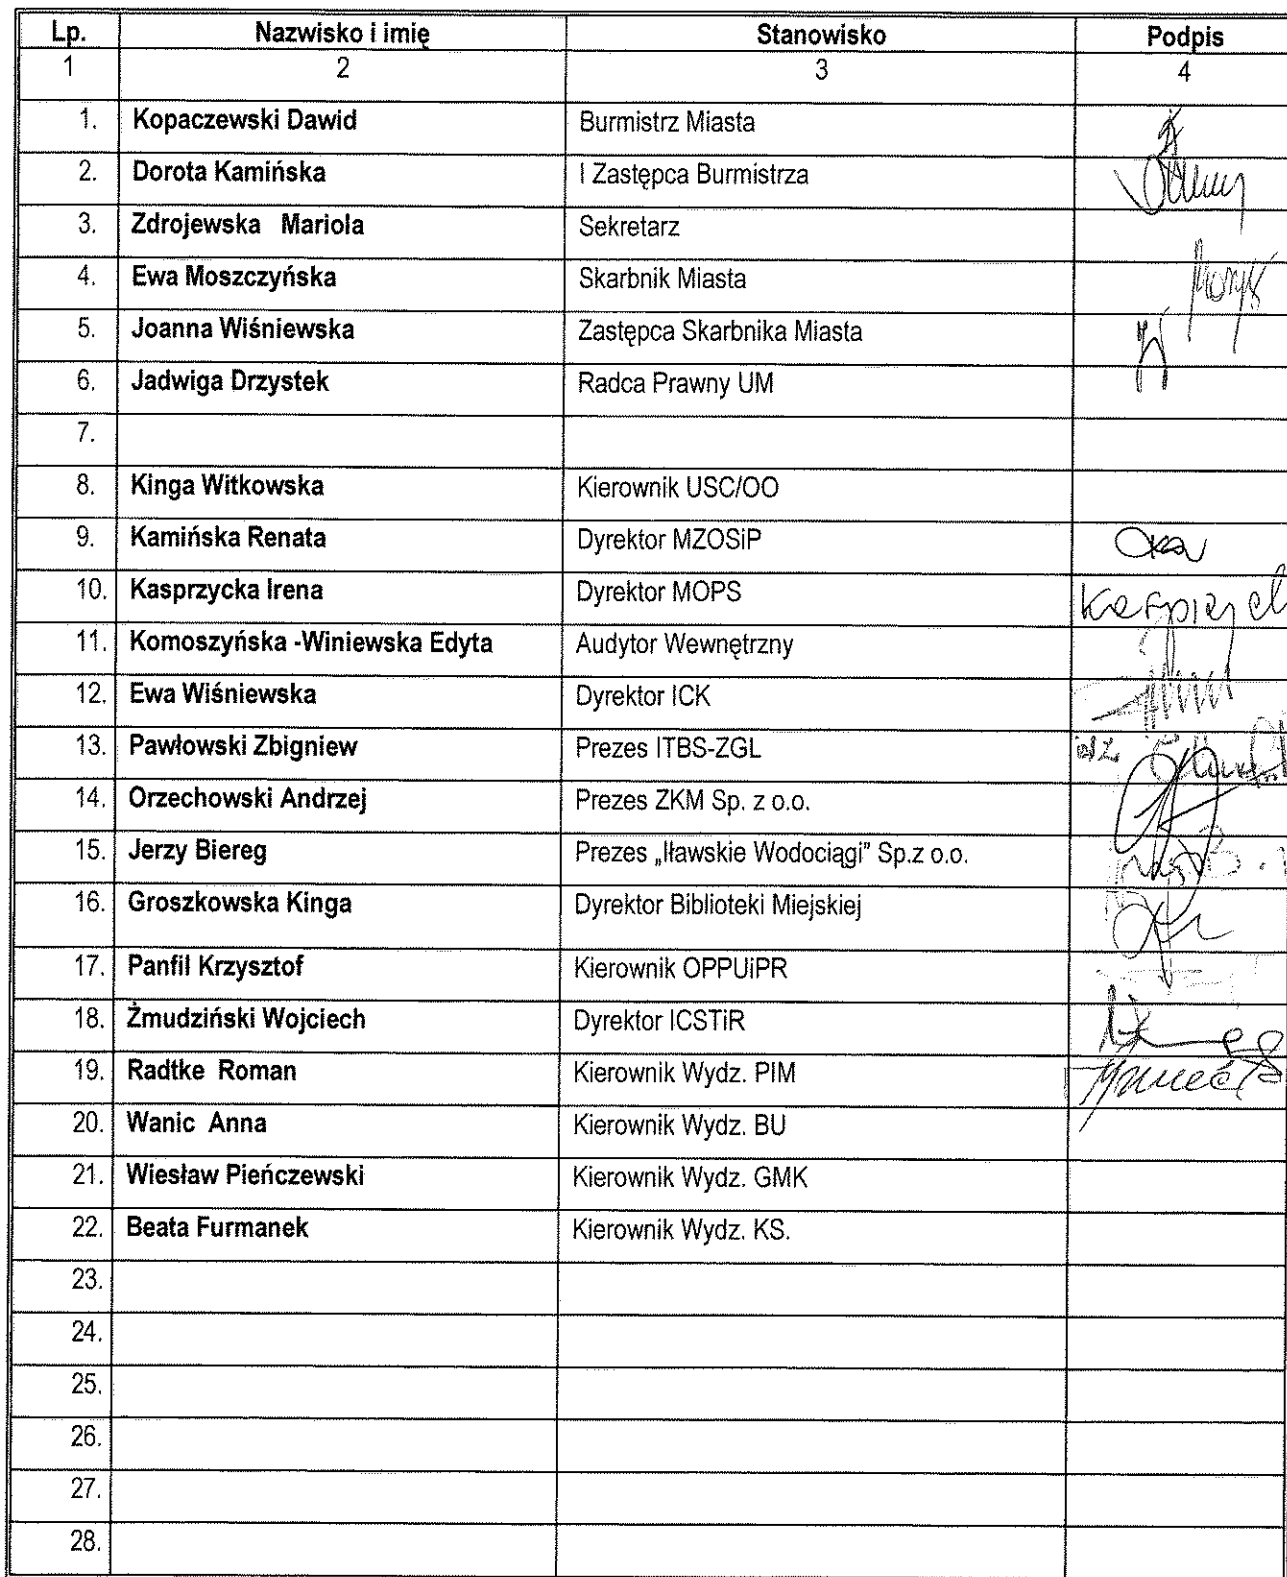 Lp. Nazwisko i imię Stanowisko Podpis
1 2 3 4
1. Kopaczewski Dawid Burmistrz Miasta
2. Dorota Kamińska I Zastępca Burmistrza
3. Zdrojewska Mariola Sekretarz
4. Ewa Moszczyńska Skarbnik Miasta
5. Joanna Wiśniewska Zastępca Skarbnika Miasta
6. Jadwiga Drzystek Radca Prawny UM
7.
8. Kinga Witkowska Kierownik USC/OO
9. Kamińska Renata Dyrektor MZOSiP
10. Kasprzycka Irena Dyrektor MOPS
11. Komoszyńska -Winiewska Edyta Audytor Wewnętrzny
12. Ewa Wiśniewska Dyrektor ICK
13. Pawłowski Zbigniew Prezes ITBS-ZGL
14. Orzechowski Andrzej Prezes ZKM Sp. z o.o.
15. Jerzy Biereg Prezes „Iławskie Wodociągi” Sp.z o.o.
16. Groszkowska Kinga Dyrektor Biblioteki Miejskiej
17. Panfil Krzysztof Kierownik OPPUiPR
18. Żmudziński Wojciech Dyrektor ICSTiR
19. Radtke Roman Kierownik Wydz. PIM
20. Wanic Anna Kierownik Wydz. BU
21. Wiesław Pieńczewski Kierownik Wydz. GMK
22. Beata Furmanek Kierownik Wydz. KS.
23.
24.
25.
26.
27.
28.